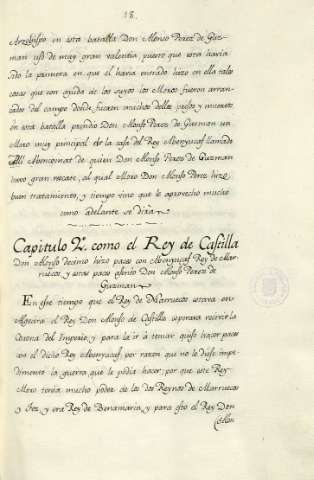 18.
Arzobispo en esta batalla Don Alonso Perez de Guz-
man usó de muy gran valentia, puesto que esta havia
sido la primera en que él havia entrado hizo en ella tales
cosas que con ajuda de los suyos los Moros fueron arran-
cados del campo donde fueron muchos dellos presos y muertos
en esta batalla prendio Don Alonso Perez de Guzman un
Moro muy principal de la casa del Rey Abenyucaf llamado
de quien Don Alonso Perez de Guzman
tuvo gran rescate, al qual Moro Don Alonso Perez hizo
buen tratamiento, y tiempo vino que le aprovechó mucho
como adelante se dirá
Capitulo V. como el Rey de Castilla
Don Alonso decimo hizo paces con Abenyucaf Rey de Mar-
ruecos y estas paces asentó Don Alonso Perez de
Guzman
En este tiempo que el Rey de Marruecos estava en
Algecira el Rey Don Alonso de Castilla esperava recevir la
Corona del Imperio, y para la ir à tomar quiso hacer paces
con el dicho Rey Abenyucaf por razon que no le diese impe-
dimento la guerra que le podia hacer: por que este Rey
Moro tenia mucho poder de los dos Reynos de Marruecos
y Fez, y era Rey de Benamarin, y para esto el Rey Don